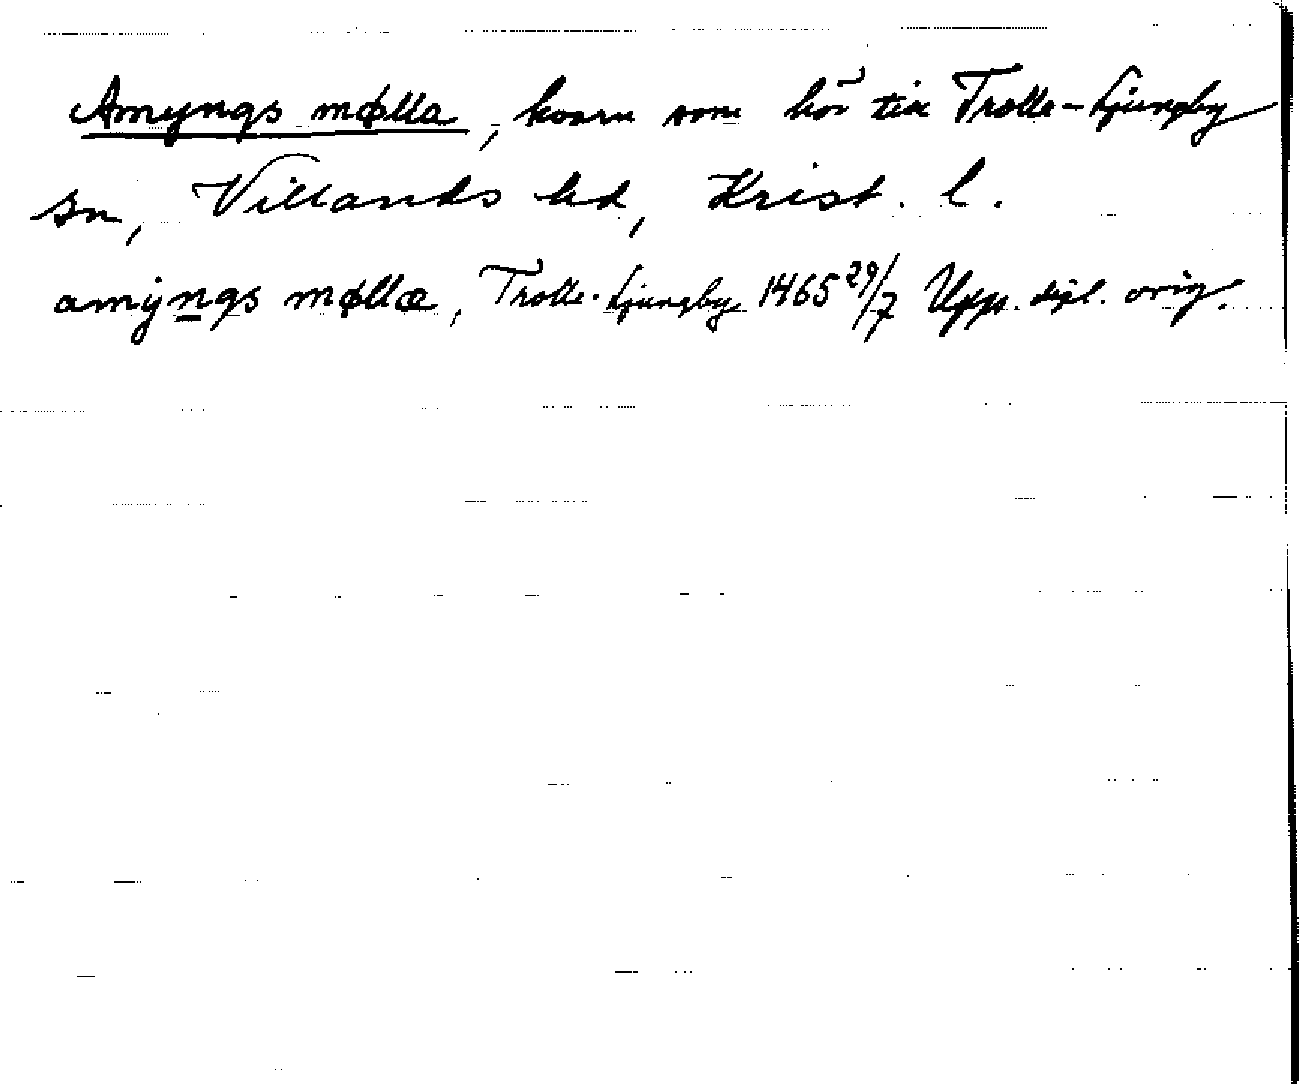 Amyngs mølla, kvarn som hör till Trolle-Ljungby
sn, Villands hd, Krist. l.
amÿngs møllæ, Trolle-Ljungby 1465 29/7 Upps. dipl. orig.